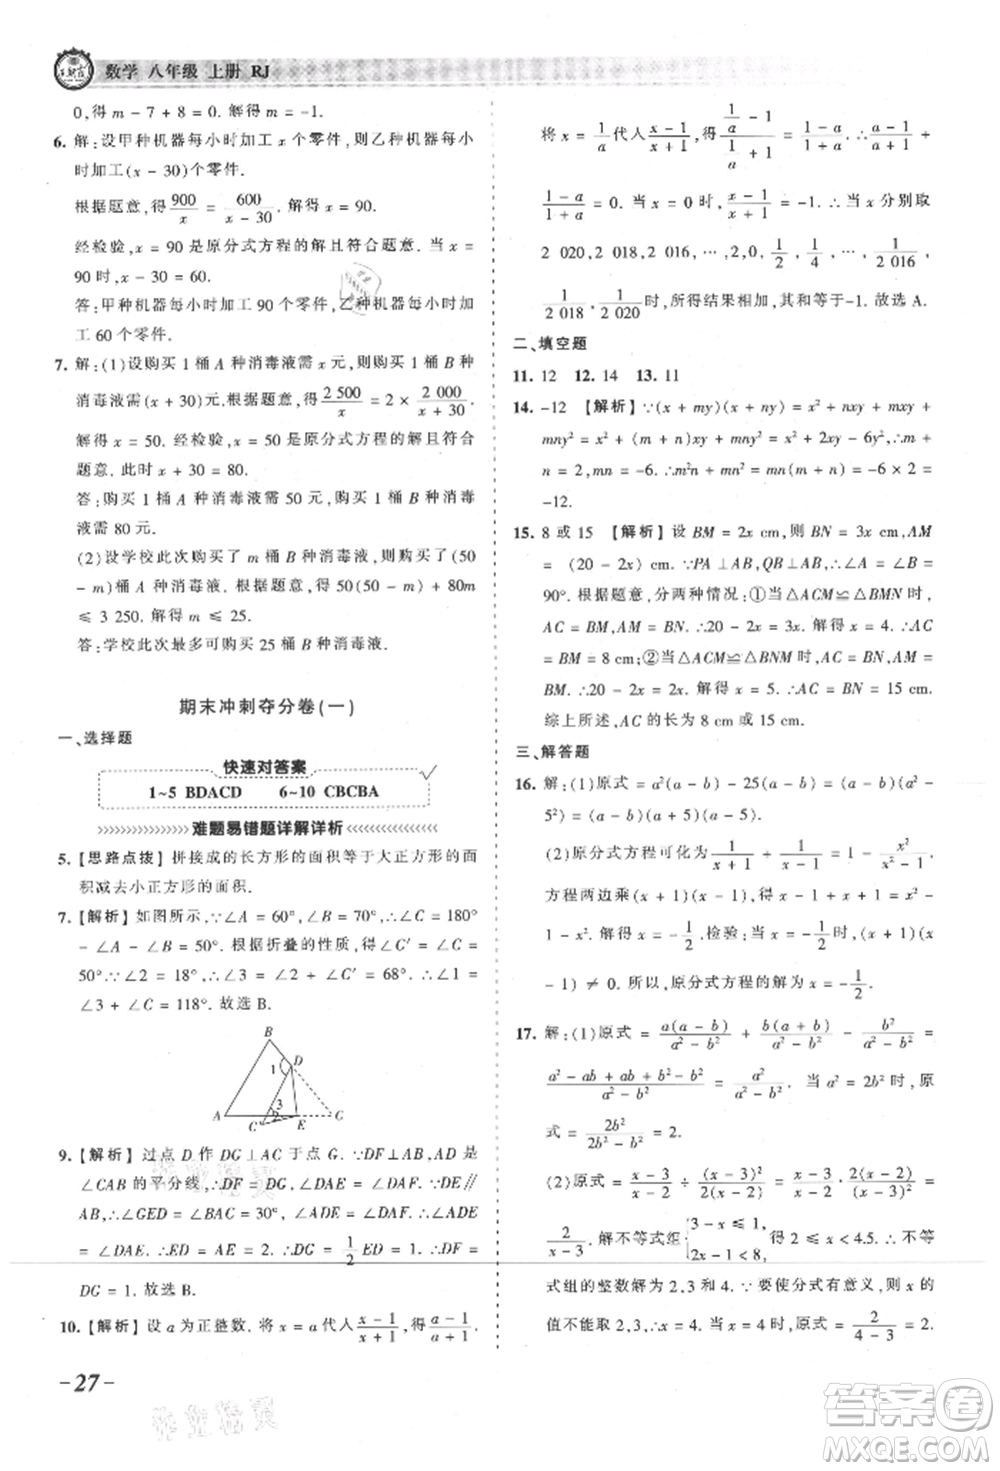 数学 八年级 上册 RJ
0,得 m − 7 + 8 = 0. 解得 m = −1.
6. 解:设甲种机器每小时加工 x 个零件,则乙种机器每小
时加工(x − 30)个零件.
根据题意,得 900/x = 600/(x − 30). 解得 x = 90.
经检验,x = 90 是原分式方程的解且符合题意. 当 x =
90 时,x − 30 = 60.
答:甲种机器每小时加工 90 个零件,乙种机器每小时加
工 60 个零件.
7. 解:(1)设购买 1 桶 A 种消毒液需 x 元,则购买 1 桶 B 种
消毒液需(x + 30)元. 根据题意,得 2 500/x = 2 × 2 000/(x + 30).
解得 x = 50. 经检验,x = 50 是原分式方程的解且符合
题意. 当 x = 50 时,x + 30 = 80.
答:购买 1 桶 A 种消毒液需 50 元,购买 1 桶 B 种消毒
液需 80 元.
(2)设学校此次购买了 m 桶 B 种消毒液,则购买了(50
− m)桶 A 种消毒液. 根据题意,得 50(50 − m) + 80m
≤ 3 250. 解得 m ≤ 25.
答:学校此次最多可购买 25 桶 B 种消毒液.
期末冲刺夺分卷(一)
一、选择题
快速对答案
1~5 BDACD 6~10 CBCBA
难题易错题详解详析
5. 【思路点拨】拼接成的长方形的面积等于大正方形的面
积减去小正方形的面积.
7. 【解析】如图所示,∵∠A = 60°,∠B = 70°,∴∠C = 180°
− ∠A − ∠B = 50°. 根据折叠的性质,得∠C′ = ∠C =
50°.∵∠2 = 18°,∴∠3 = ∠2 + ∠C′ = 68°.∴∠1 =
∠3 + ∠C = 118°. 故选 B.
B
D
1
3
2
A
C′
E
C
9. 【解析】过点 D 作 DG⊥AC 于点 G. ∵DF⊥AB,AD 是
∠CAB 的平分线,∴DF = DG,∠DAE = ∠DAF.∵DE∥
AB,∴∠GED = ∠BAC = 30°,∠DAF = ∠ADE.∴∠ADE
= ∠DAE.∴ED = AE = 2.∴DG = 1/2 ED = 1.∴DF =
DG = 1. 故选 B.
10. 【解析】设 a 为正整数. 将 x = a 代入 (x − 1)/(x + 1),得 (a − 1)/(a + 1).
将 x = 1/a 代入 (x − 1)/(x + 1),得 (1/a − 1)/(1/a + 1) = (1 − a)/(1 + a).∴(a − 1)/(a + 1) +
(1 − a)/(1 + a) = 0. 又∵当 x = 0 时,(x − 1)/(x + 1) = −1.∴当 x 分别取
2 020,2 018,2 016,…,2,0,1/2,1/4,…,1/2 016,
1/2 018,1/2 020时,所得结果相加,其和等于−1. 故选 A.
二、填空题
11. 12 12. 14 13. 11
14. −12 【解析】∵(x + my)(x + ny) = x² + nxy + mxy +
mny² = x² + (m + n)xy + mny² = x² + 2xy − 6y²,∴m +
n = 2,mn = −6.∴m²n + mn² = mn(m + n) = −6 × 2 =
−12.
15. 8 或 15 【解析】设 BM = 2x cm,则 BN = 3x cm,AM
= (20 − 2x) cm.∵PA⊥AB,QB⊥AB,∴∠A = ∠B =
90°. 根据题意,分两种情况:①当△ACM≌△BMN时,
AC = BM,AM = BN.∴20 − 2x = 3x. 解得 x = 4.∴AC
= BM = 8 cm;②当△ACM≌△BNM 时,AC = BN,AM
= BM.∴20 − 2x = 2x. 解得 x = 5.∴AC = BN = 15 cm.
综上所述,AC 的长为 8 cm 或 15 cm.
三、解答题
16. 解:(1)原式 = a²(a − b) − 25(a − b) = (a − b)(a² −
5²) = (a − b)(a + 5)(a − 5).
(2)原分式方程可化为 1/(x + 1) + 1/(x − 1) = 1 − x²/(x² − 1).
方程两边乘(x + 1)(x − 1),得 x − 1 + x + 1 = x² −
1 − x². 解得 x = −1/2.检验:当 x = −1/2时,(x + 1)(x
− 1) ≠ 0. 所以,原分式方程的解为 x = −1/2.
17. 解:(1)原式 = a(a − b)/(a² − b²) + b(a + b)/(a² − b²) − b²/(a² − b²) =
(a² − ab + ab + b² − b²)/(a² − b²) = a²/(a² − b²). 当 a² = 2b² 时,原
式 = 2b²/(2b² − b²) = 2.
(2)原式 = (x − 3)/(x − 2) ÷ (x − 3)²/2(x − 2) = (x − 3)/(x − 2) · 2(x − 2)/(x − 3)² =
2/(x − 3). 解不等式组{3 − x ≤ 1, 2x − 1 < 8, 得 2 ≤ x < 4.5.∴不等
式组的整数解为 2,3 和 4.∵要使分式有意义,x 的
值不能取 2,3,∴x = 4. 当 x = 4 时,原式 = 2/(4 − 3) = 2.
−27−
答案圈
MXQE.COM